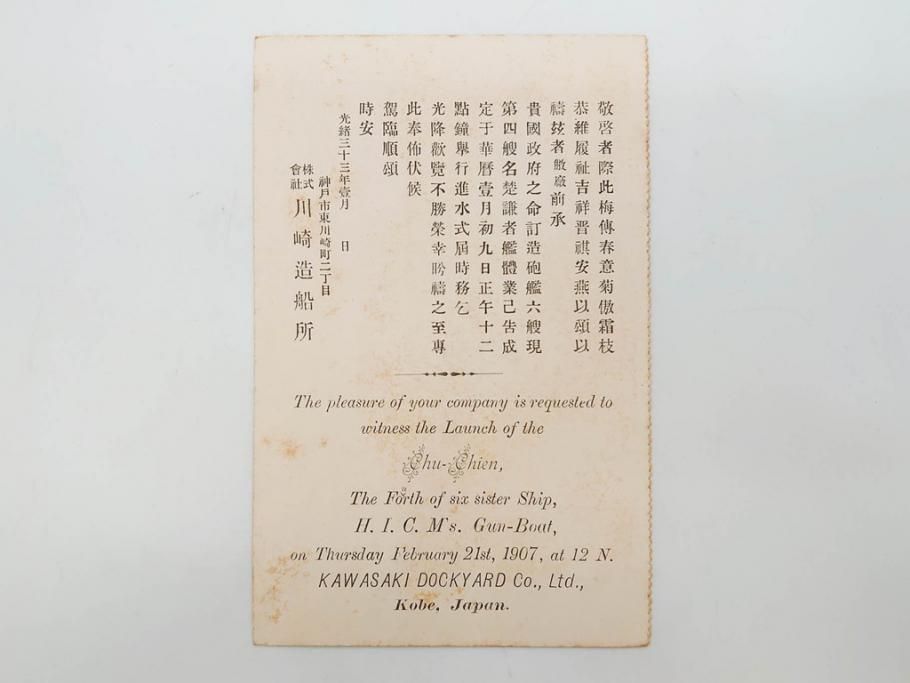 敬啓者際此梅傳春意菊傲霜枝
恭維履祉吉祥晋祺安燕以頌以
禱玆者敝廠前承
貴國政府之命訂造砲艦六艘現
第四艘名楚謙者艦體業己告成
定于華曆壹月初九日正午十二
點鐘舉行進水式屆時務乞
光降歡覽不勝榮幸盻禱之至專
此奉佈伏候
駕臨順頌
時安
光緒三十三年壹月　日
神戶市東川崎町二丁目
株式會社川崎造船所
The pleasure of your company is requested to
witness the Launch of the
Chu-Chien,
The Forth of six sister Ship,
H. I. C. M's. Gun-Boat,
on Thursday February 21st, 1907, at 12 N.
KAWASAKI DOCKYARD Co., Ltd.,
Kobe, Japan.